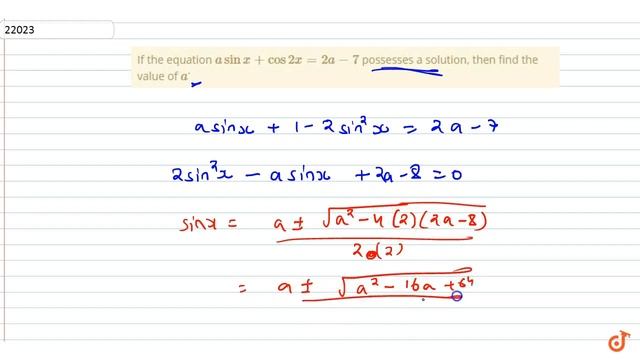 22023
If the equation a sin x + cos 2x = 2a − 7 possesses a solution, then find the
value of a.
asinx + 1 - 2 sin²x = 2a - 7
2sin²x - a sinx + 2a - 8 = 0
sinx = a ± √a² - 4(2)(2a-8)
2(2)
= a ± √a² - 16a + 64